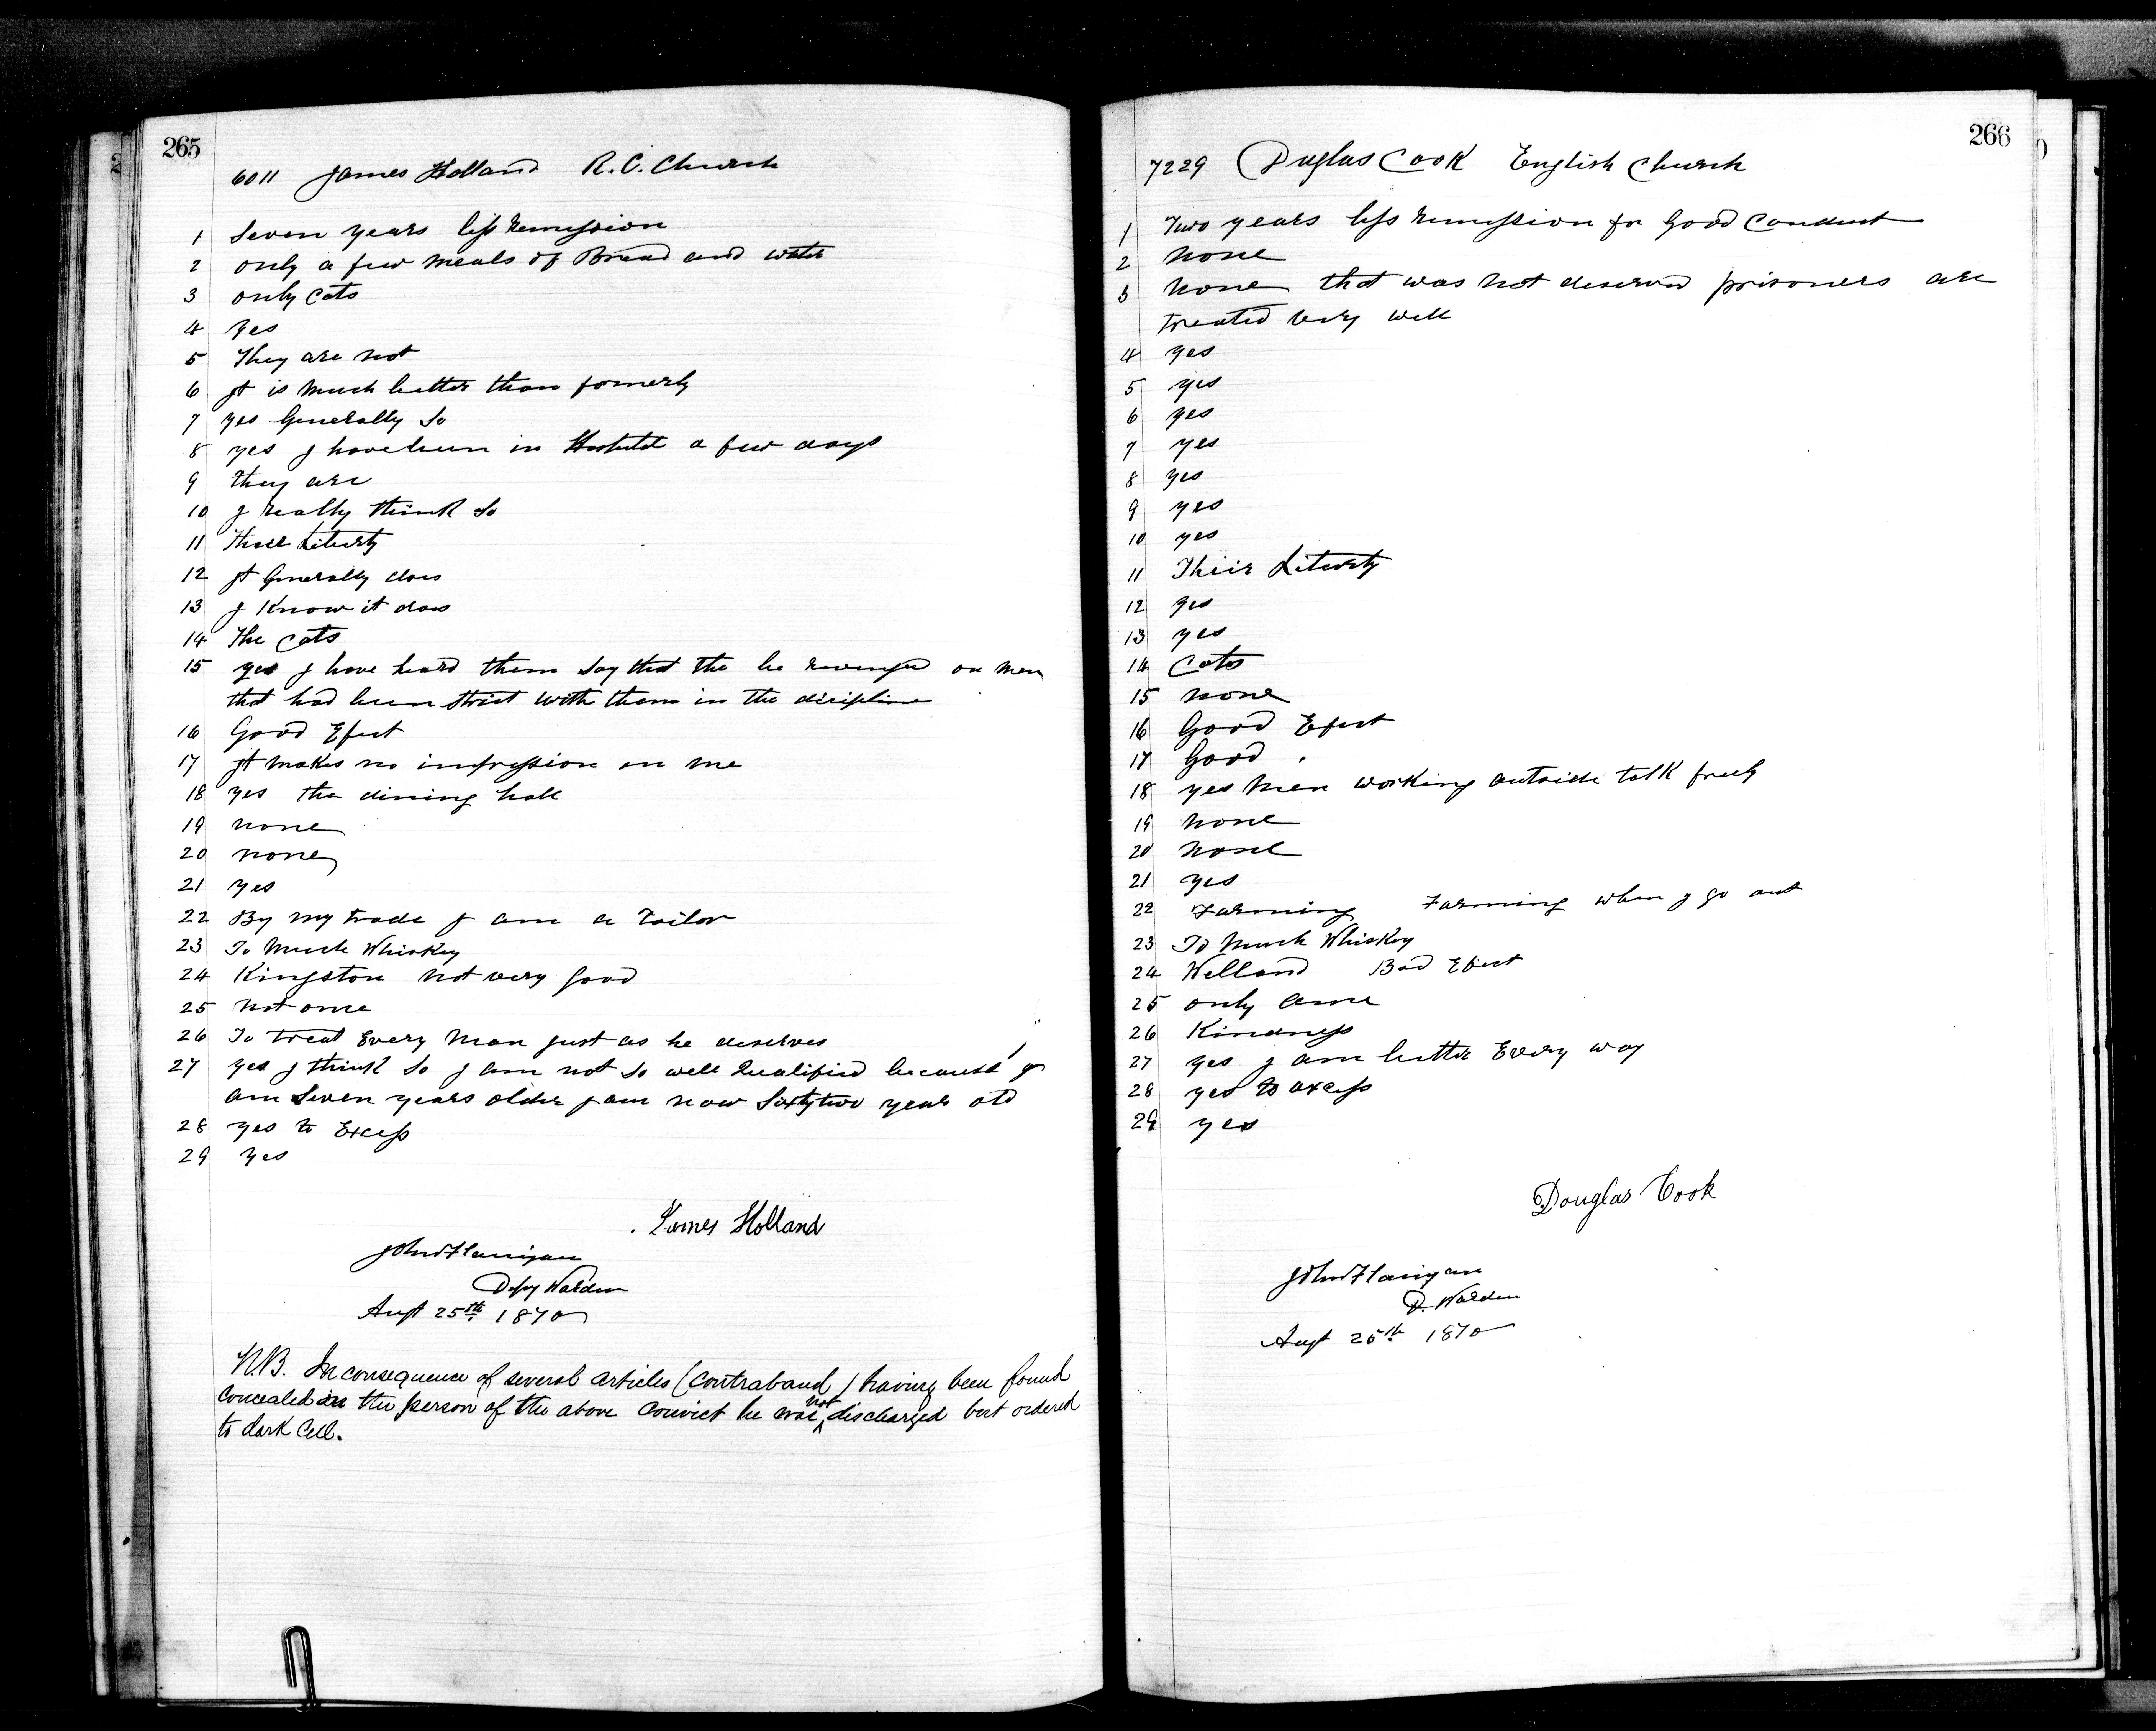 265
6011 James Holland R. C. Church
1 Seven years less remission
2 only a few meals of Bread and water
3 only Cats
4 yes
5 They are not
6 It is much better than formerly
7 yes Generally So
8 yes I have been in a few days
9 they are
10 I really think So
11 Liberty
12 It Generally does
13 I Know it does
14 The Cats
15 yes I have heard them Say that the be revenged on men
that had been strict with them in the discipline
16 Good Efect
17 It makes no impression on me
18 yes the dining hall
19 none
20 none
21 yes
22 By my trade I am a Tailor
23 To Much Whiskey
24 Kingston not very good
25 not one
26 To treat Every Man just as he deserves
27 yes I think So I am not so well Qualified because I
am Seven years older I am now Sixty two years old
28 yes to Excess
29 yes
James Holland
John Flanigan
Depy Warden
Augt 25th 1870
N.B. In consequence of several articles (contraband) having been found
concealed on the person of the above Convict he was not discharged but ordered
to dark Cell.
266
7229 Duglas Cook English Church
1 Two years less remission for Good Conduct
2 none
3 none that was not deserved prisoners are
treated very well
4 yes
5 yes
6 yes
7 yes
8 yes
9 yes
10 yes
11 Their Liberty
12 yes
13 yes
14 Cats
15 none
16 Good Efect
17 Good
18 yes men working outside talk freely
19 none
20 none
21 yes
22 Farming Farming when I go out
23 To Much Whiskey
24 Welland Bad Efect
25 only
26 Kindness
27 yes I am better Every way
28 yes to excess
29 yes
Douglas Cook
John Flanigan
D. Warden
Augt 25th 1870